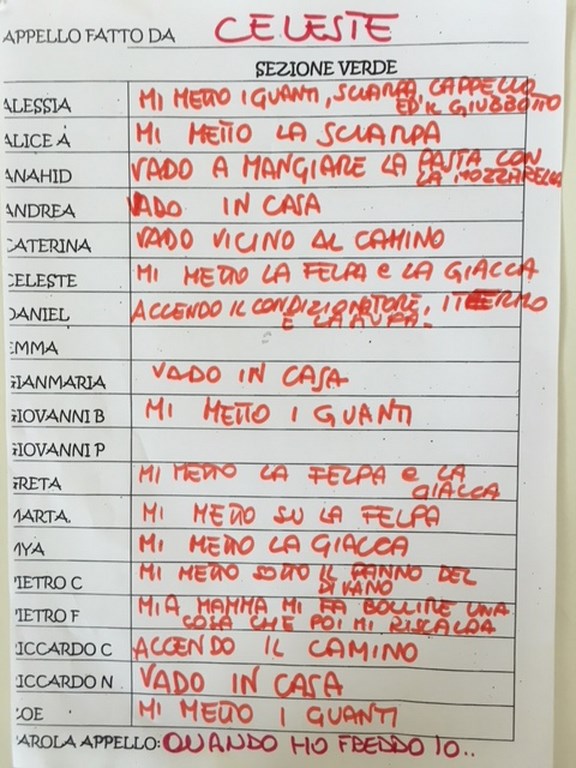 APPELLO FATTO DA CELESTE
SEZIONE VERDE
ALESSIA MI METTO I GUANTI, SCIARPA, CAPPELLO
ED IL GIUBBOTTO
ALICE A MI METTO LA SCIARPA
ANAHID VADO A MANGIARE LA PASTA CON
LA MOZZARELLA
ANDREA VADO IN CASA
CATERINA VADO VICINO AL CAMINO
CELESTE MI METTO LA FELPA e LA GIACCA
DANIEL ACCENDO IL CONDIZIONATORE, I TERMO
E LA
EMMA
GIANMARIA VADO IN CASA
GIOVANNI B MI METTO I GUANTI
GIOVANNI P
GRETA MI METTO LA FELPA e LA
GIACCA
MARTA. MI METTO SU LA FELPA
MYA MI METTO LA GIACCA
PIETRO C MI METTO SOTTO IL PANNO DEL
DIVANO
PIETRO F MIA MAMMA MI FA BOLLIRE UNA
COSA CHE POI MI RISCALDA
RICCARDO C ACCENDO IL CAMINO
RICCARDO N VADO IN CASA
ZOE MI METTO I GUANTI
PAROLA APPELLO: QUANDO HO FREDDO IO..